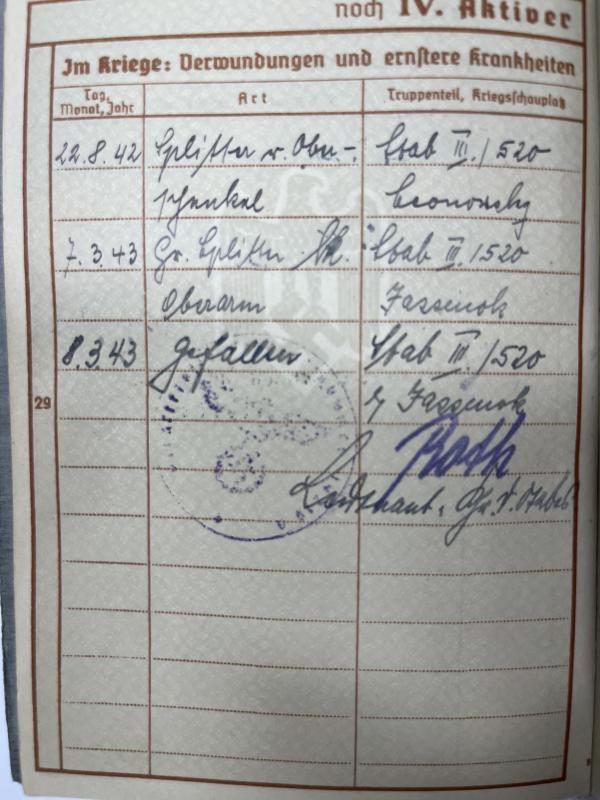 noch IV. Aktiver
Im Kriege: Verwundungen und ernstere Krankheiten
Tag, Monat, Jahr
Art
Truppenteil, Kriegsschauplatz
22.8.42 Splitter r. Ober- Stab III./520
schenkel
7.3.43 Gr. Splitter lk. Stab III./520
Oberarm Jassenok
8.3.43 Gefallen Stab III./520
b/ Jassenok
29
Roth
Leutnant u.